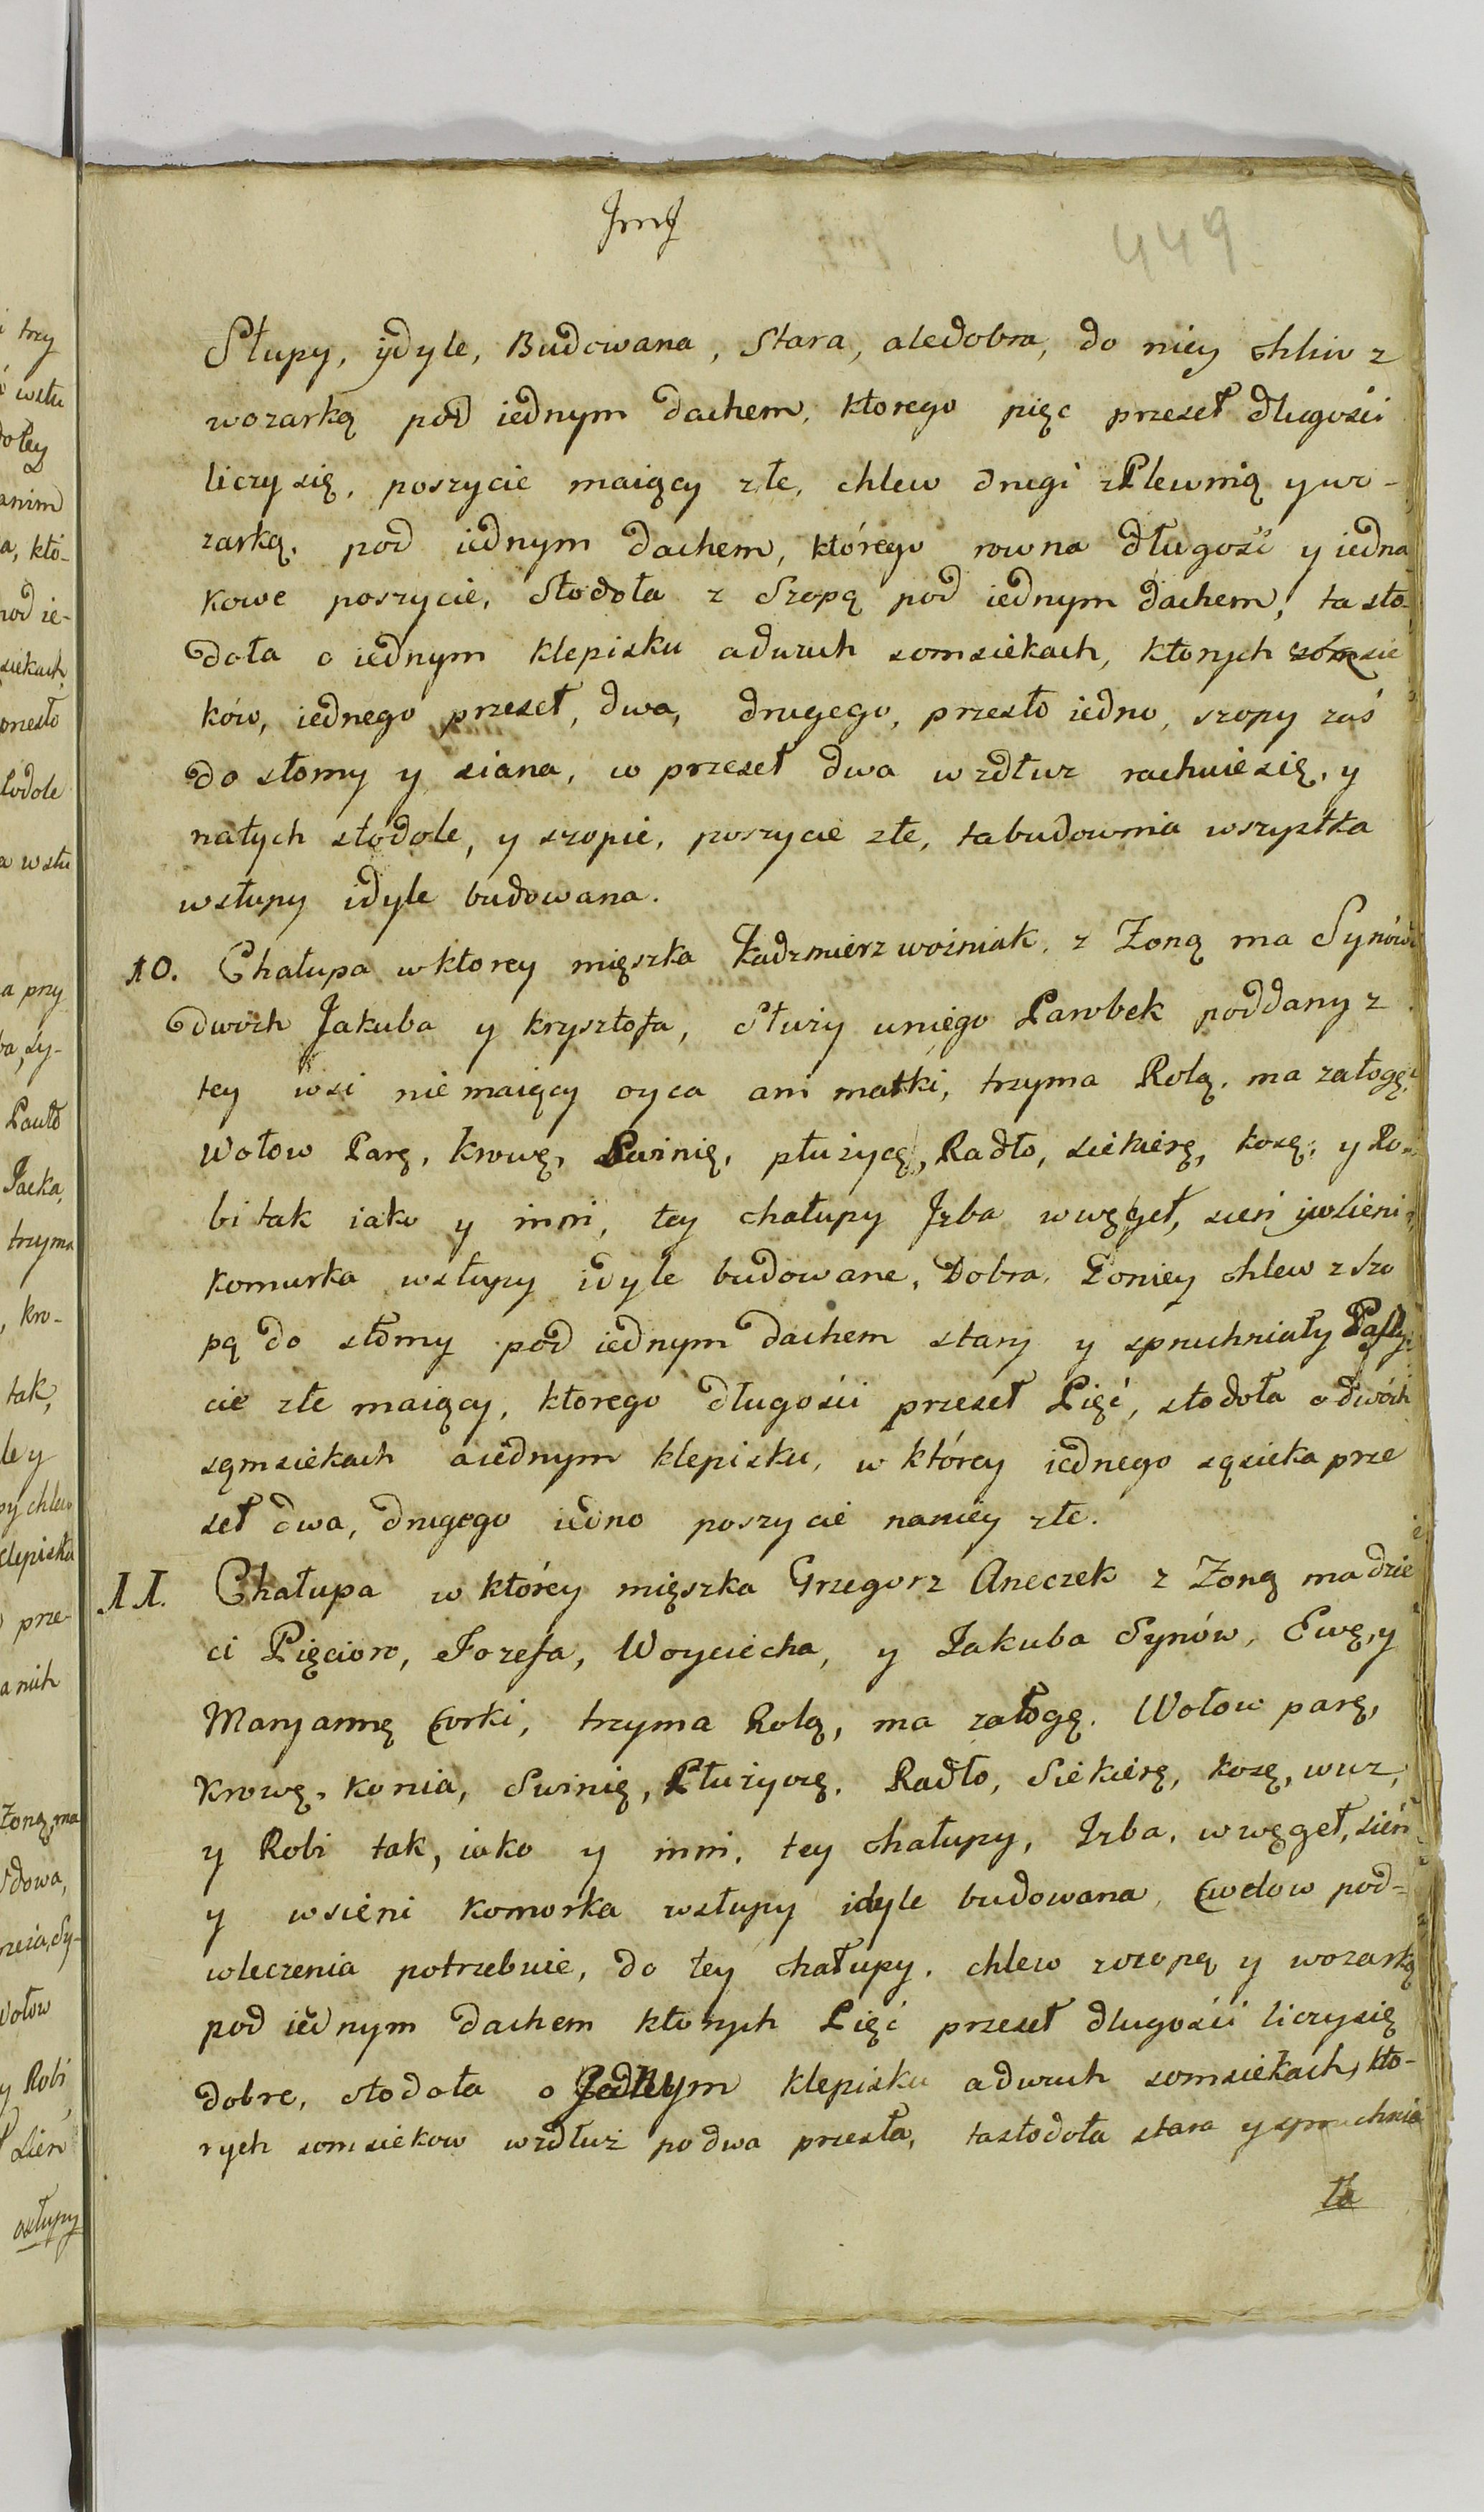 JmJ
449
Słupy, ydyle, Budowana, Stara, aledobra, do niey chliw z
wozarką pod iednym dachem, ktorego pięc przeseł długości
liczy się, poszycie maiący złe, chlew drugi zPlewnią y wo-
zarką, pod iednym dachem, którego rowna długość y iedna
kowe poszycie, Stodoła z Szopą pod iednym dachem, ta sto-
doła o iednym klepisku adwuch somsiekach, ktorych somsie
ków, iednego przeseł, dwa, drugego, przesło iedno, szopy zaś
do słomy y siana, w przeseł dwa wzdłuz rachuiesię, y
natych stodole, y szopie, poszycie złe, tabudownia wszystka
wsłupy idyle budowana.
10. Chałupa wktorey mięszka Kadzmierz wozniak, z Zoną ma Synów
dwoch Jakuba y krysztofa, służy uniego Parobek poddany z
tey wsi nie maiący oyca ani matki, trzyma Rolą, ma załogę,
Wołow Parę, krowę, Swinię, płużycę, Radło, siekierę, kosę, y Ro-
bi tak iako y inni, tey chałupy Jzba wwęgeł, sień ywsieni
komurka wsłupy idyle budowane, Dobra, Doniey chlew z szo
pą do słomy pod iednym dachem stary y spruchniały Poszy
cie złe maiący, ktorego długości przeseł Pięć, stodoła o dwóch
sęmsiekach aiednym klepisku, w którey iednego sąsieka prze
seł dwa, drugego iedno poszycie naniey złe.
11. Chałupa w którey mięszka Grzegorz Aneczek z Zoną ma dzie
ci Pięcioro, Jozefa, Woyciecha, y Jakuba Synów, Ewę, y
Maryannę Corki, trzyma Rolą, ma załogę. Wołow parę,
krowę, konia, Swinię, Płużycę, Radło, Siekierę, kosę, wuz,
y Robi tak, iako y inni, tey chałupy, Izba, wwęgeł, sień
y wsieni komorka wsłupy idyle budowana, Cwelow pod=
wleczenia potrzebuie, do tey chałupy, chlew zszopą y wozarką
pod iednym dachem ktorych Pięć przeseł długości liczysię
dobre, stodoła o Jednym klepisku adwuch somsiekach, kto-
rych somsiekow wzdłuż po dwa przesła, tastodoła stara y spruchnia
ła